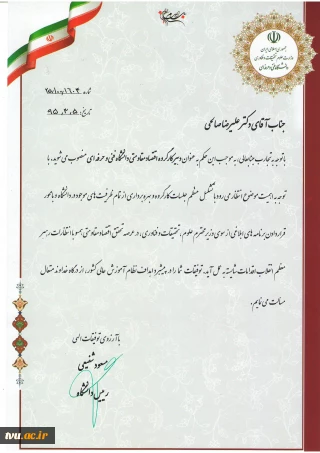 جمهوری اسلامی ایران
وزارت علوم، تحقیقات و فناوری
دانشگاه فنی و حرفه‌ای
تاریخ: ۹۵،۲،۵
جناب آقای دکتر علیرضا صالحی
با توجه به تجارب جنابعالی، به موجب این حکم به عنوان دبیر کارگروه اقتصاد مقاومتی دانشگاه فنی و حرفه‌ای منصوب می شوید. با
توجه به اهمیت موضوع انتظار می رود با تشکیل منظم جلسات کارگروه و بهره برداری از تمام ظرفیت های موجود در دانشگاه و با محور
قرار دادن برنامه های ابلاغی از سوی وزیر محترم علوم، تحقیقات و فناوری، در عرصه تحقق اقتصاد مقاومتی همسو با انتظارات رهبر
معظم انقلاب اقدامات شایسته به عمل آید. توفیقات شما را در پیشبرد اهداف نظام آموزش عالی کشور، از درگاه خداوند متعال
مسالت می نمایم.
با آرزوی توفیقات الهی
مسعود شفیعی
رییس دانشگاه
tvu.ac.ir